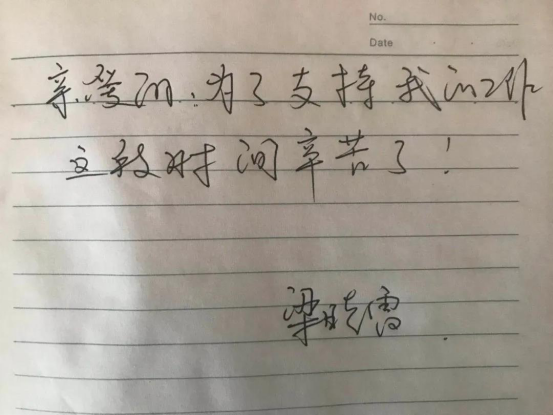 No.
Date
亲爱的：为了支持我的工作
这段时间辛苦了！
梁晓雷